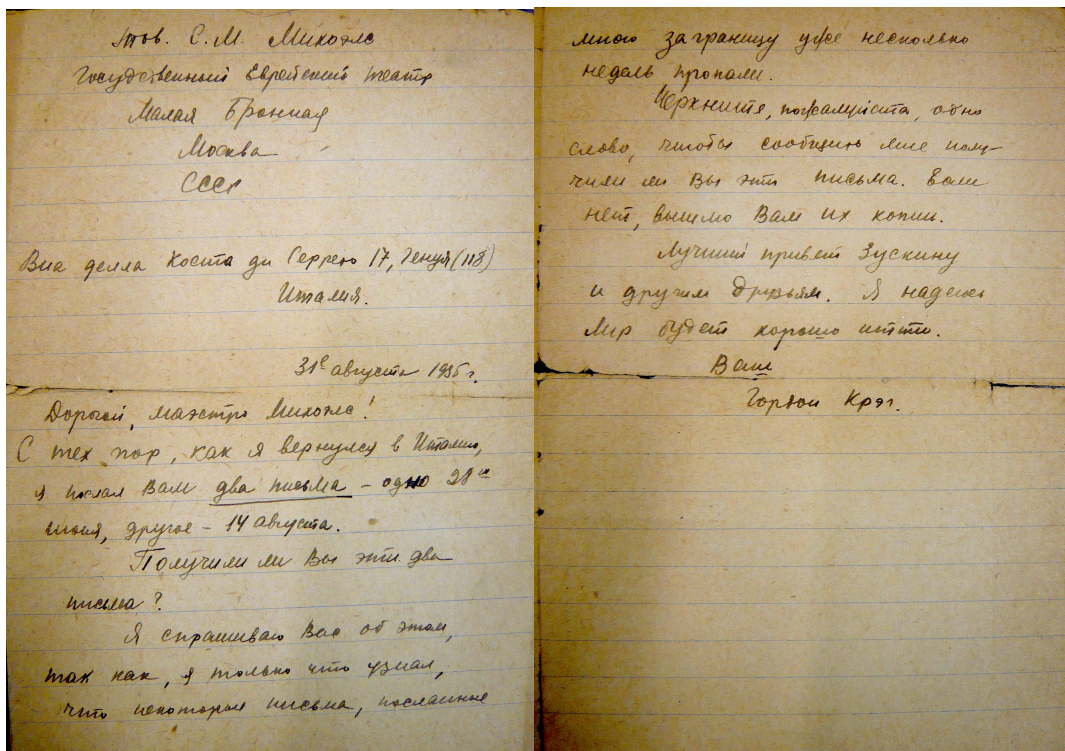 Тов. С. М. Михоэлс
Государственный Еврейский театр
Малая Бронная
Москва
СССР
Виа делла Коста ди Серрето 17, Генуя (118)
Италия.
31е августа 1935 г.
Дорогой, маэстро Михоэлс!
С тех пор, как я вернулся в Италию,
я послал Вам два письма – одно 28 го
июня, другое – 14 августа.
Получили ли Вы эти два
письма?
Я спрашиваю Вас об этом,
так как, я только что узнал,
что некоторые письма, посланные
мною заграницу уже несколько
недель пропали.
Черкните, пожалуйста, одно
слово, чтобы сообщить мне полу-
чили ли Вы эти письма. Если
нет, вышлю Вам их копии.
Лучший привет Зускину
и другим друзьям. Я надеюсь
Лир будет хорошо итти.
Ваш
Гордон Крэг.